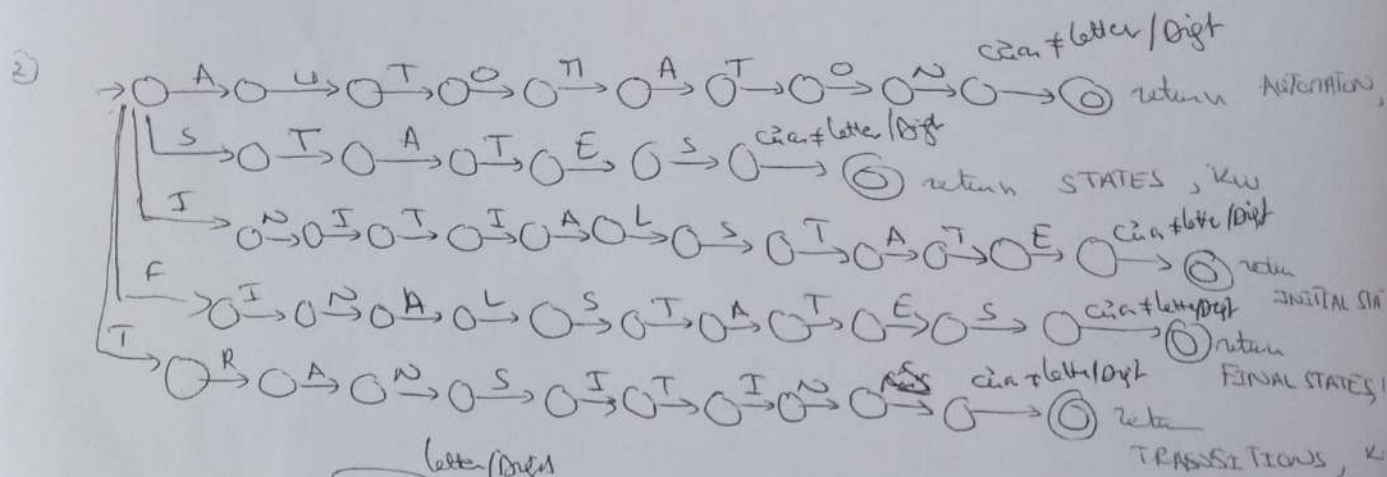 2) A U T O M A T O N car ≠ letter/Digit return AUTOMATON,
S T A T E S car ≠ letter/Digit return STATES, KW
I N I T I A L S T A T E car ≠ letter/Digit return INITIAL STA
F I N A L S T A T E S car ≠ letter/Digit return FINAL STATES,
T R A N S I T I N car ≠ letter/Digit return TRANSITIONS, K
letter/Digit